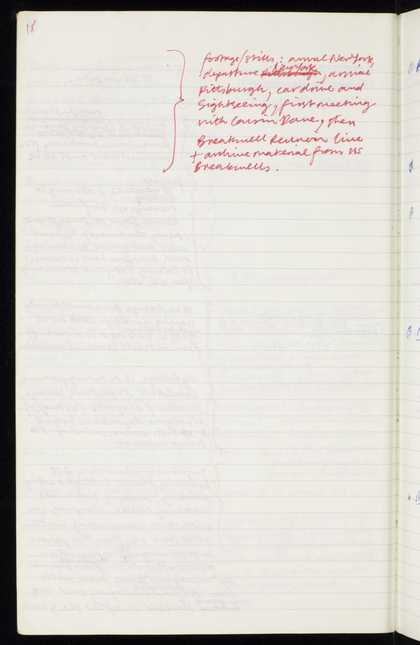 18
footage/stills: arrival New York,
New York
departure Pittsburgh, arrive
Pittsburgh, car drive and
Sightseeing, first meeting
with Cousin Dave, then
Breakwell Reunion live
+ archive material from US
Breakwells.